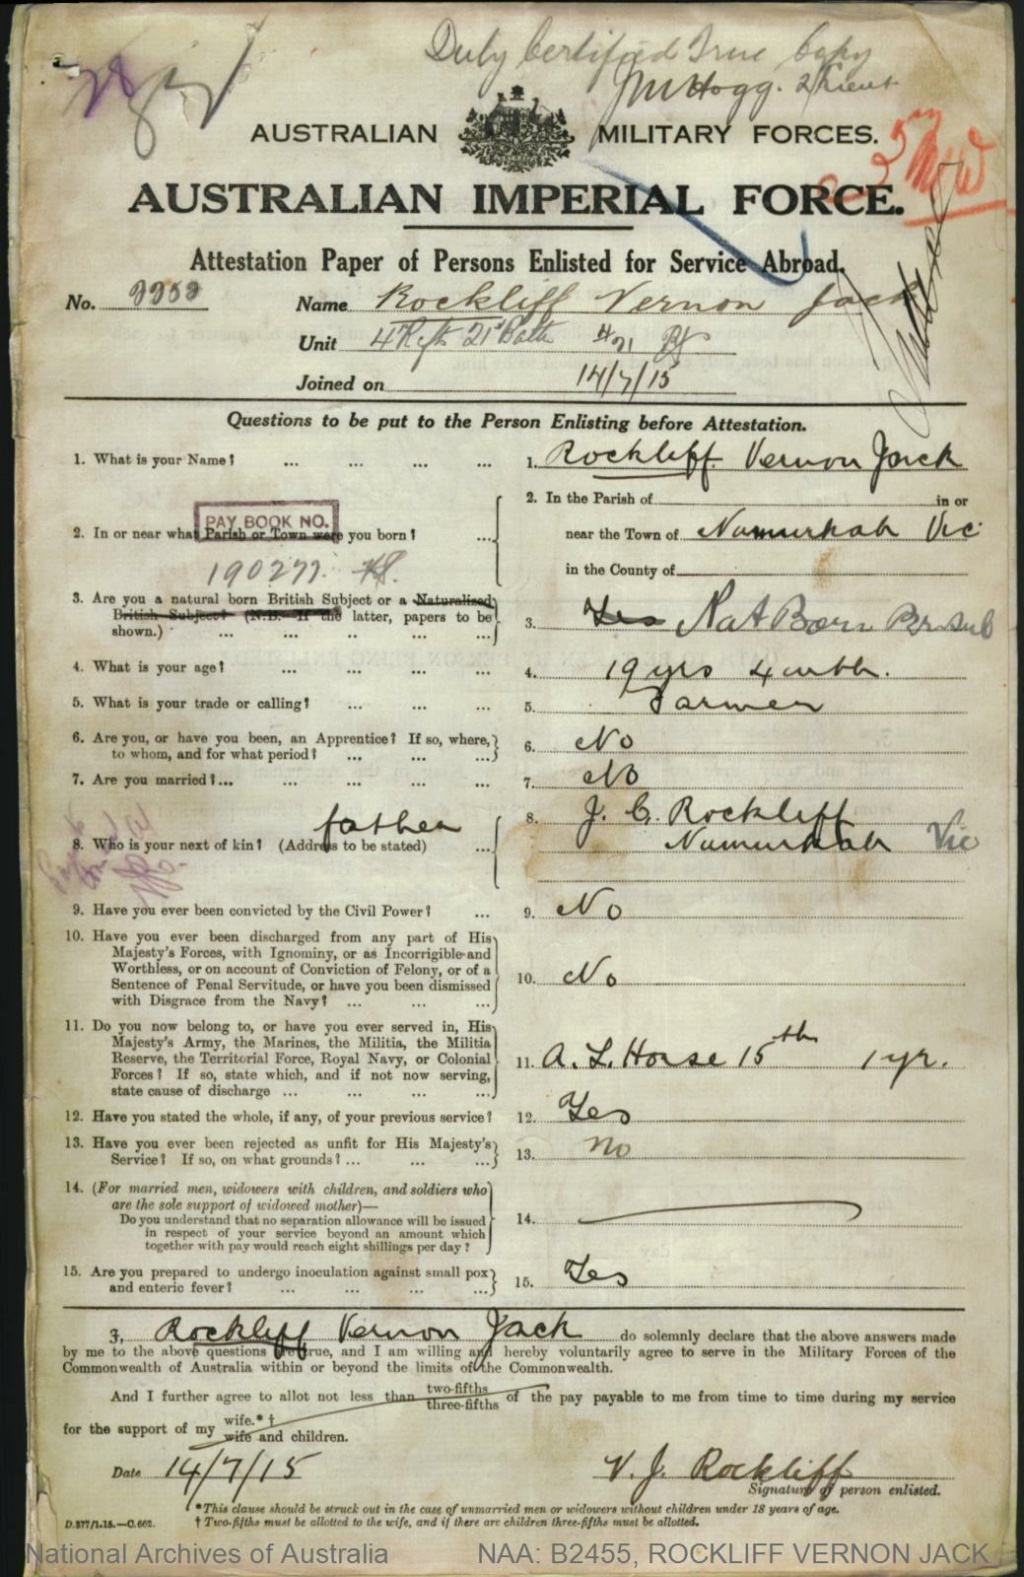 Duly Certified True Copy
J M Hogg. 2/Lieut
AUSTRALIAN MILITARY FORCES.
AUSTRALIAN IMPERIAL FORCE.
Attestation Paper of Persons Enlisted for Service Abroad.
No. Name Rockliff Vernon Jack
Unit 4 Rfts 21st Battn 4/21
Joined on 14/7/15
Questions to be put to the Person Enlisting before Attestation.
1. What is your Name? ... ... ... ... 1. Rockliff Vernon Jack
2. In the Parish of in or
PAY BOOK NO.
2. In or near what Parish or Town were you born? ... near the Town of Numurkah Vic
190277. in the County of
3. Are you a natural born British Subject or a Naturalised
British Subject? (N.B.—If the latter, papers to be
shown.) ... ... ... ... 3. Yes Nat Born Br Sub
4. What is your age? ... ... ... 4. 19 yrs 4 mths.
5. What is your trade or calling? ... ... ... 5. Farmer
6. Are you, or have you been, an Apprentice? If so, where,
to whom, and for what period? ... ... ... 6. No
7. Are you married?... ... ... ... ... 7. No
father 8. J. C. Rockliff
8. Who is your next of kin? (Address to be stated) ... Numurkah Vic
9. Have you ever been convicted by the Civil Power? ... 9. No
10. Have you ever been discharged from any part of His
Majesty's Forces, with Ignominy, or as Incorrigible and
Worthless, or on account of Conviction of Felony, or of a
Sentence of Penal Servitude, or have you been dismissed
with Disgrace from the Navy? ... ... ... 10. No
11. Do you now belong to, or have you ever served in, His
Majesty's Army, the Marines, the Militia, the Militia
Reserve, the Territorial Force, Royal Navy, or Colonial
Forces? If so, state which, and if not now serving,
state cause of discharge ... ... ... ... 11. A. L. Horse 15th 1 yr.
12. Have you stated the whole, if any, of your previous service? 12. Yes
13. Have you ever been rejected as unfit for His Majesty's
Service? If so, on what grounds? ... ... ... 13. No
14. (For married men, widowers with children, and soldiers who
are the sole support of widowed mother)—
Do you understand that no separation allowance will be issued
in respect of your service beyond an amount which
together with pay would reach eight shillings per day? 14.
15. Are you prepared to undergo inoculation against small pox
and enteric fever? ... ... ... ... 15. Yes
I, Rockliff Vernon Jack do solemnly declare that the above answers made
by me to the above questions are true, and I am willing and hereby voluntarily agree to serve in the Military Forces of the
Commonwealth of Australia within or beyond the limits of the Commonwealth.
And I further agree to allot not less than two-fifths three-fifths of the pay payable to me from time to time during my service
for the support of my wife.*† wife and children.
Date 14/7/15 V. J. Rockliff
Signature of person enlisted.
* This clause should be struck out in the case of unmarried men or widowers without children under 18 years of age.
D.377/1.15.—C.662. † Two-fifths must be allotted to the wife, and if there are children three-fifths must be allotted.
National Archives of Australia NAA: B2455, ROCKLIFF VERNON JACK